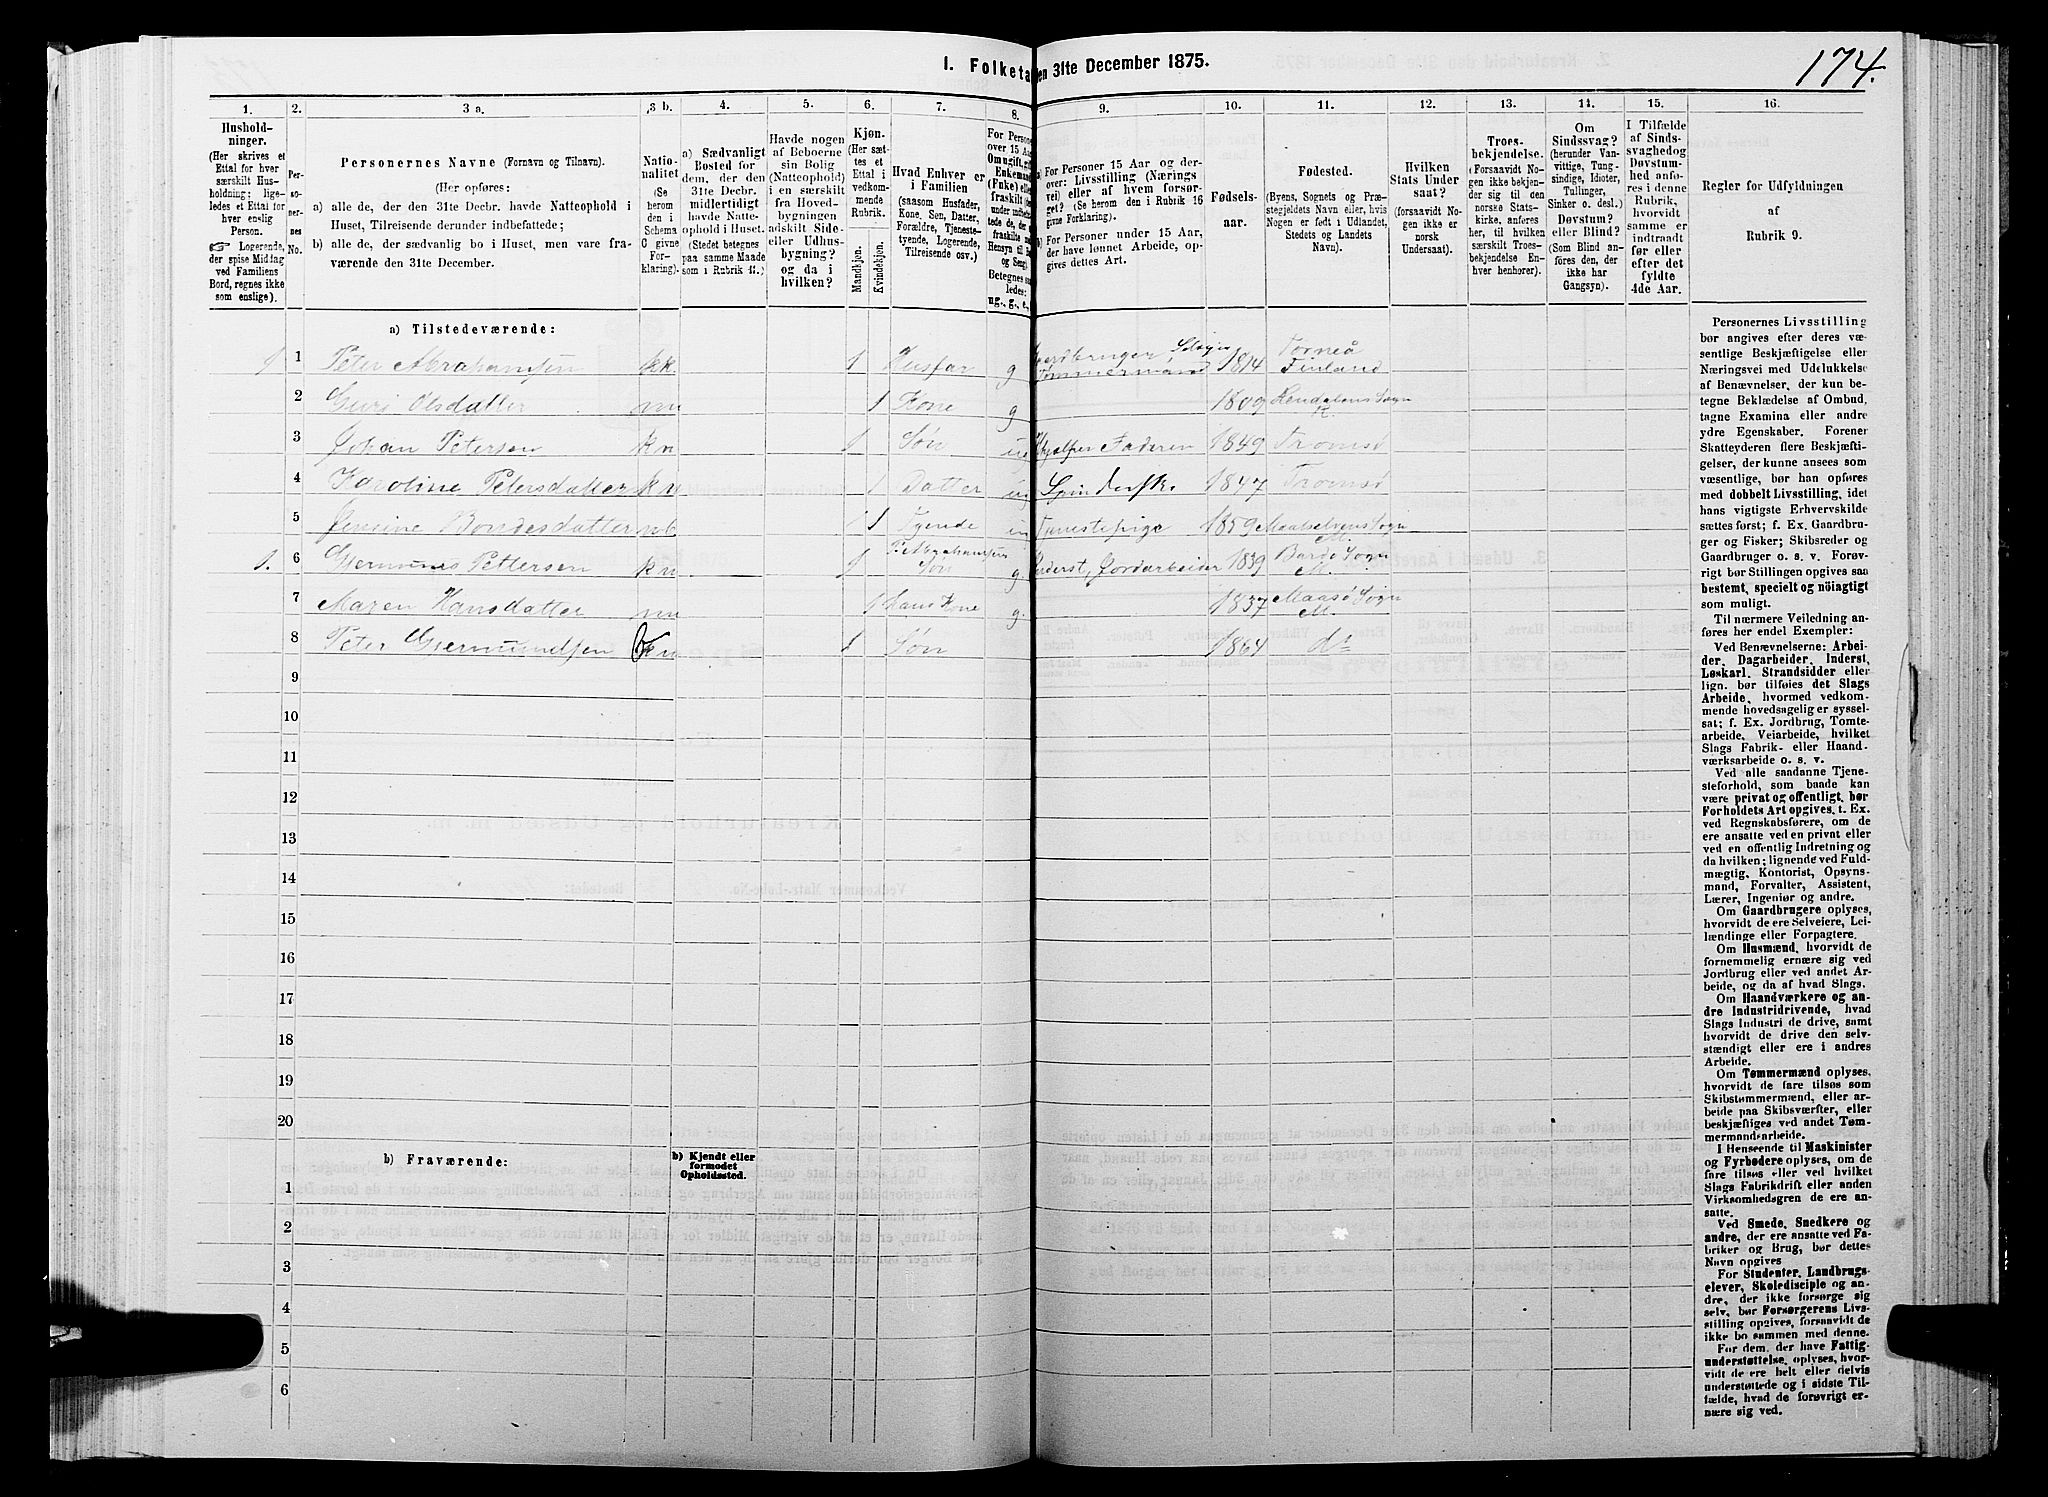 174.
I. Folketa
en 31te December 1875.
1.
2.
3 a.
3 b.
4.
5.
6.
7.
8.
9.
10.
11.
12.
13.
14.
15.
16.
Hushold-
ninger.
(Her skrives et
Ettal for hver
særskilt Hus-
holdning; lige-
ledes et Ettal for
hver enslig
Person.
☞ Logerende,
der spise Middag
ved Familiens
Bord, regnes ikke
som enslige).
Per-
so-
ner-
nes
No.
Personernes Navne (Fornavn og Tilnavn).
(Her opføres:
a) alle de, der den 31te Decbr. havde Natteophold i
Huset, Tilreisende derunder indbefattede;
b) alle de, der sædvanlig bo i Huset, men vare fra-
værende den 31te December.
Natio-
nalitet
(Se
herom
den i
Schema
C givne
For-
klaring).
a) Sædvanligt
Bosted for
dem, der den
31te Decbr.
midlertidigt
havde Natte-
ophold i Huset.
(Stedet betegnes
paa samme Maade
som i Rubrik 11.)
Havde nogen
af Beboerne
sin Bolig
(Natteophold)
i en særskilt
fra Hoved-
bygningen
adskilt Side-
eller Udhus-
bygning?
og da i
hvilken?
Kjøn.
(Her sæt-
tes et
Ettal i
vedkom-
mende
Rubrik.
Mandkjøn.
Kvindekjøn.
Hvad Enhver er
i Familien
(saasom Husfader,
Kone, Søn, Datter,
Forældre, Tjeneste-
tyende, Logerende,
Tilreisende osv.)
For Person
over 15 Aar
Om ugift, gift
Enkemand
(Enke) eller
fraskilt
Betegnes
ledes:
ug., g., e.,
a) For Personer 15 Aar og der-
over: Livsstilling (Nærings
vei) eller af hvem forsør-
get? (Se herom den i Rubrik 16
givne Forklaring).
b) For Personer under 15 Aar,
der have lønnet Arbeide, op-
gives dettes Art.
Fødsels-
aar.
Fødested.
(Byens, Sognets og Præ-
stegjeldets Navn eller, hvis
Nogen er født i Udlandet,
Stedets og Landets
Navn).
Hvilken
Stats Under
saat?
(forsaavidt No-
gen ikke er
norsk
Undersaat).
Troes-
bekjendelse.
(Forsaavidt No-
gen ikke bekjen-
der sig til den
norske Stats-
kirke, anføres
her, til hvilken
særskilt Troes-
bekjendelse En-
hver henhører).
Om
Sindssvag?
(herunder Van-
vittige, Tung-
sindige, Idioter,
Tullinger,
Sinker o. desl.)
Døvstum?
eller Blind?
(Som Blind an-
føres den, der
ikke har
Gangsyn).
I Tilfælde
af Sinds-
svaghed og
Døvstum-
hed anfø-
res i denne
Rubrik,
hvorvidt
samme er
indtraadt
før eller
efter det
fyldte
4de Aar.
Regler for Udfyldningen
af
Rubrik 9.
a) Tilstedeværende:
1 1 Peter Abrahamsen kk. 1 Husfar g Gaardbruger Selveier Tømmermand 1814 Torneå Finland
2 Guri Olsdatter nn 1 Kone g 1809 Rendalens Sogn
3 Johan Petersen kn 1 Søn ug Hjælper Faderen 1849 Tromsø
4 Karoline Petersdatter kn 1 Datter ug Spinderske 1847 Tromsø
5 Jensine Bondesdatter 1 Tyende Tjenestepige 1859 Maalselvens Sogn M.
1. 6 Gjermunes Pettersen kn 1 Søn g. Inderst, Jordarbeider 1839 Bardo Sogn M.
7 Maren Hansdatter nn 1 Hans Kone g. 1837 Maasø Sogn M.
8 Peter Gjermundsen kn 1 Søn 1864 do
9
10
11
12
13
14
15
16
17
18
19
20
b) Fraværende:
b) Kjendt eller
formodet
Opholdssted.
1
2
3
4
5
6
Personernes Livsstilling
bør angives efter deres væ-
sentlige Beskjæftigelse eller
Næringsvei med Udelukkelse
af Benævnelser, der kun be-
tegne Beklædelse af Ombud,
tagne Examina eller andre
ydre Egenskaber. Forener
Skatteyderen flere Beskjæfti-
gelser, der kunne ansees som
væsentlige, bør han opføres
med dobbelt Livsstilling, idet
hans vigtigste Erhvervskilde
sættes først; f. Ex. Gaardbru-
ger og Fisker; Skibsreder og
Gaardbruger o. s. v. Forøv-
rigt bør Stillingen opgives saa
bestemt, specielt og nöiagtigt
som muligt.
Til nærmere Veiledning an-
føres her endel Exempler:
Ved Benævnelserne: Arbei-
der, Dagarbeider, Inderst,
Løskarl, Strandsidder eller
lign. bør tilføies det Slags
Arbeide, hvormed vedkom-
mende hovedsagelig er syssel-
sat; f. Ex. Jordbrug, Tomte-
arbeide, Veiarbeide, hvilket
Slags Fabrik- eller Haand-
værksarbeide o. s. v.
Ved alle saadanne Tjene-
steforhold, som baade kan
være privat og offentligt, bør
Forholdets Art opgives, t. Ex.
ved Regnskabsførere, om de
ere ansatte ved en privat eller
ved en offentlig Indretning og
da hvilken; lignende ved Fuld-
mægtig, Kontorist, Opsyns-
mand, Forvalter, Assistent,
Lærer, Ingeniør og andre.
Om Gaardbrugere oplyses,
hvorvidt de ere Selveiere, Lei-
lændinge eller Forpagtere.
Om Husmænd, hvorvidt de
fornemmelig ernære sig ved
Jordbrug eller ved andet Ar-
beide, og da af hvad Slags.
Om Haandværkere og an-
dre Industridrivende, hvad
Slags Industri de drive, samt
hvorvidt de drive den selv-
stændigt eller ere i andres
Arbeide.
Om Tømmermænd oplyses,
hvorvidt de fare tilsøs som
Skibstømmermænd, eller ar-
beide paa Skibsværfter, eller
beskjæftiges ved andet Tøm-
mermandsarbeide.
I Henseende til Maskinister
og Fyrbødere oplyses, om de
fare tilsøs eller ved hvilket
Slags Fabrikdrift eller anden
Virksomhedsgren de ere an-
satte.
Ved Smede, Snedkere og
andre, der ere ansatte ved Fa-
briker og Brug, bør dettes
Navn opgives
For Studenter, Landbrugs-
elever, Skoledisciple og an-
dre, der ikke forsørge sig
selv, bør Forsørgerens Livs-
stilling opgives, forsaavidt de
ikke bo sammen med denne.
For dem, der have Fattig-
understøttelse, oplyses, hvor-
vidt de ere helt eller delvis
understøttede og i sidste Til-
fælde, hvad de forøvrigt er-
nære sig ved.